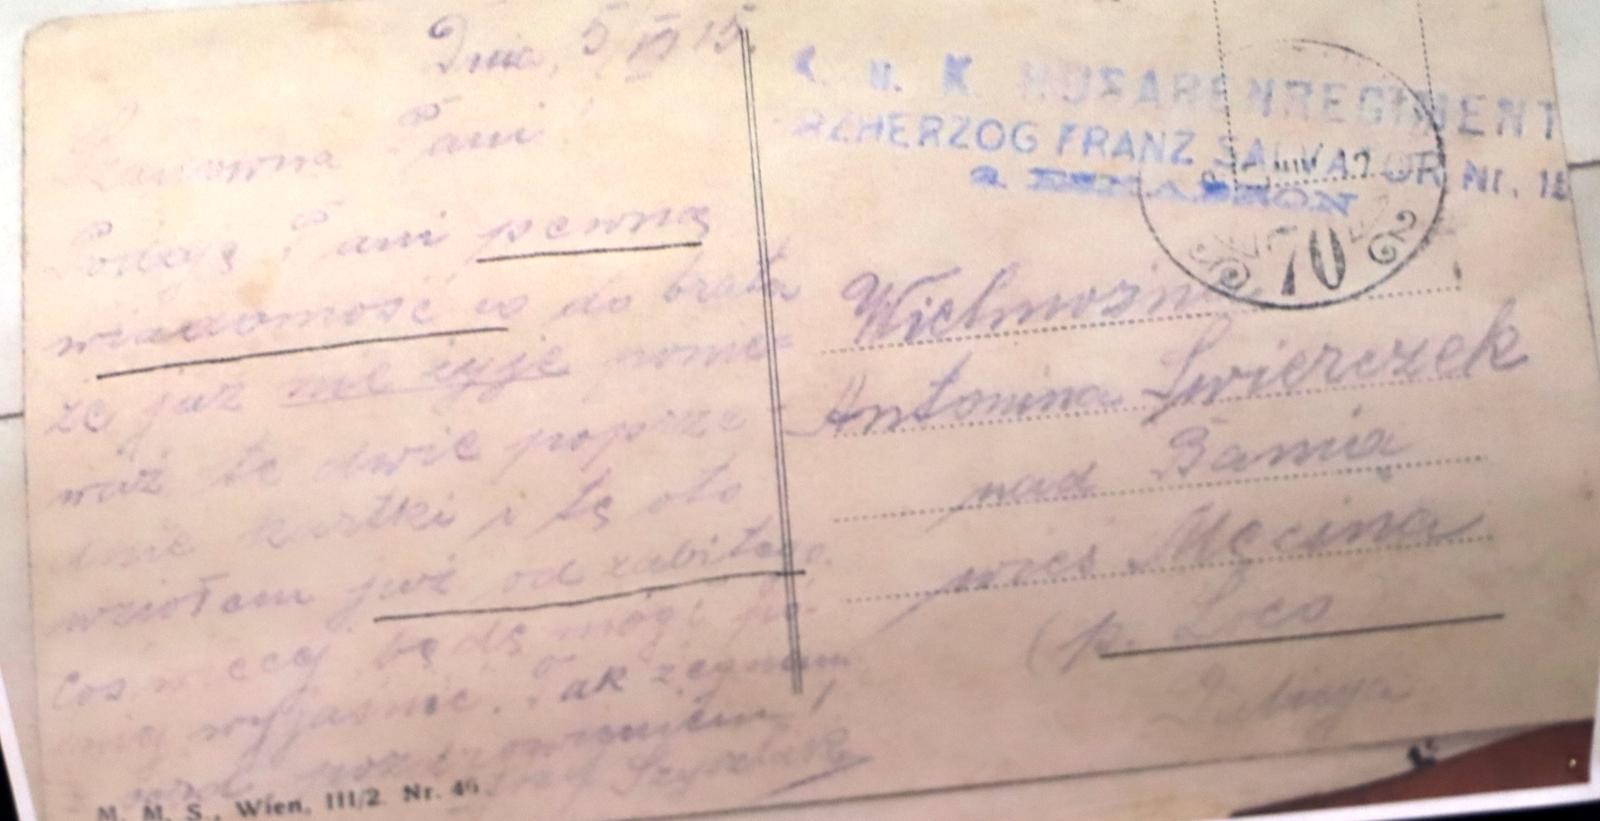 Dnia, 5/VI 15.
Szanowna Pani!
Pani pewną
wiadomość co do brata
że już nie żyje ponie-
waż te dwie poprze-
dnie kartki i tę oto
wziołem już od zabitego.
Coś wiecej będę mógł pó-
wyjaśnić. Tak żegnam
M. M. S., Wien, III/2. Nr. 49.
K. u. K. HUSARENREGIMENT
RZHERZOG FRANZ SALVATOR Nr. 15
70
Wielmożna
Antonina Świerczek
nad Bania
wieś Męcina
(p. Loco